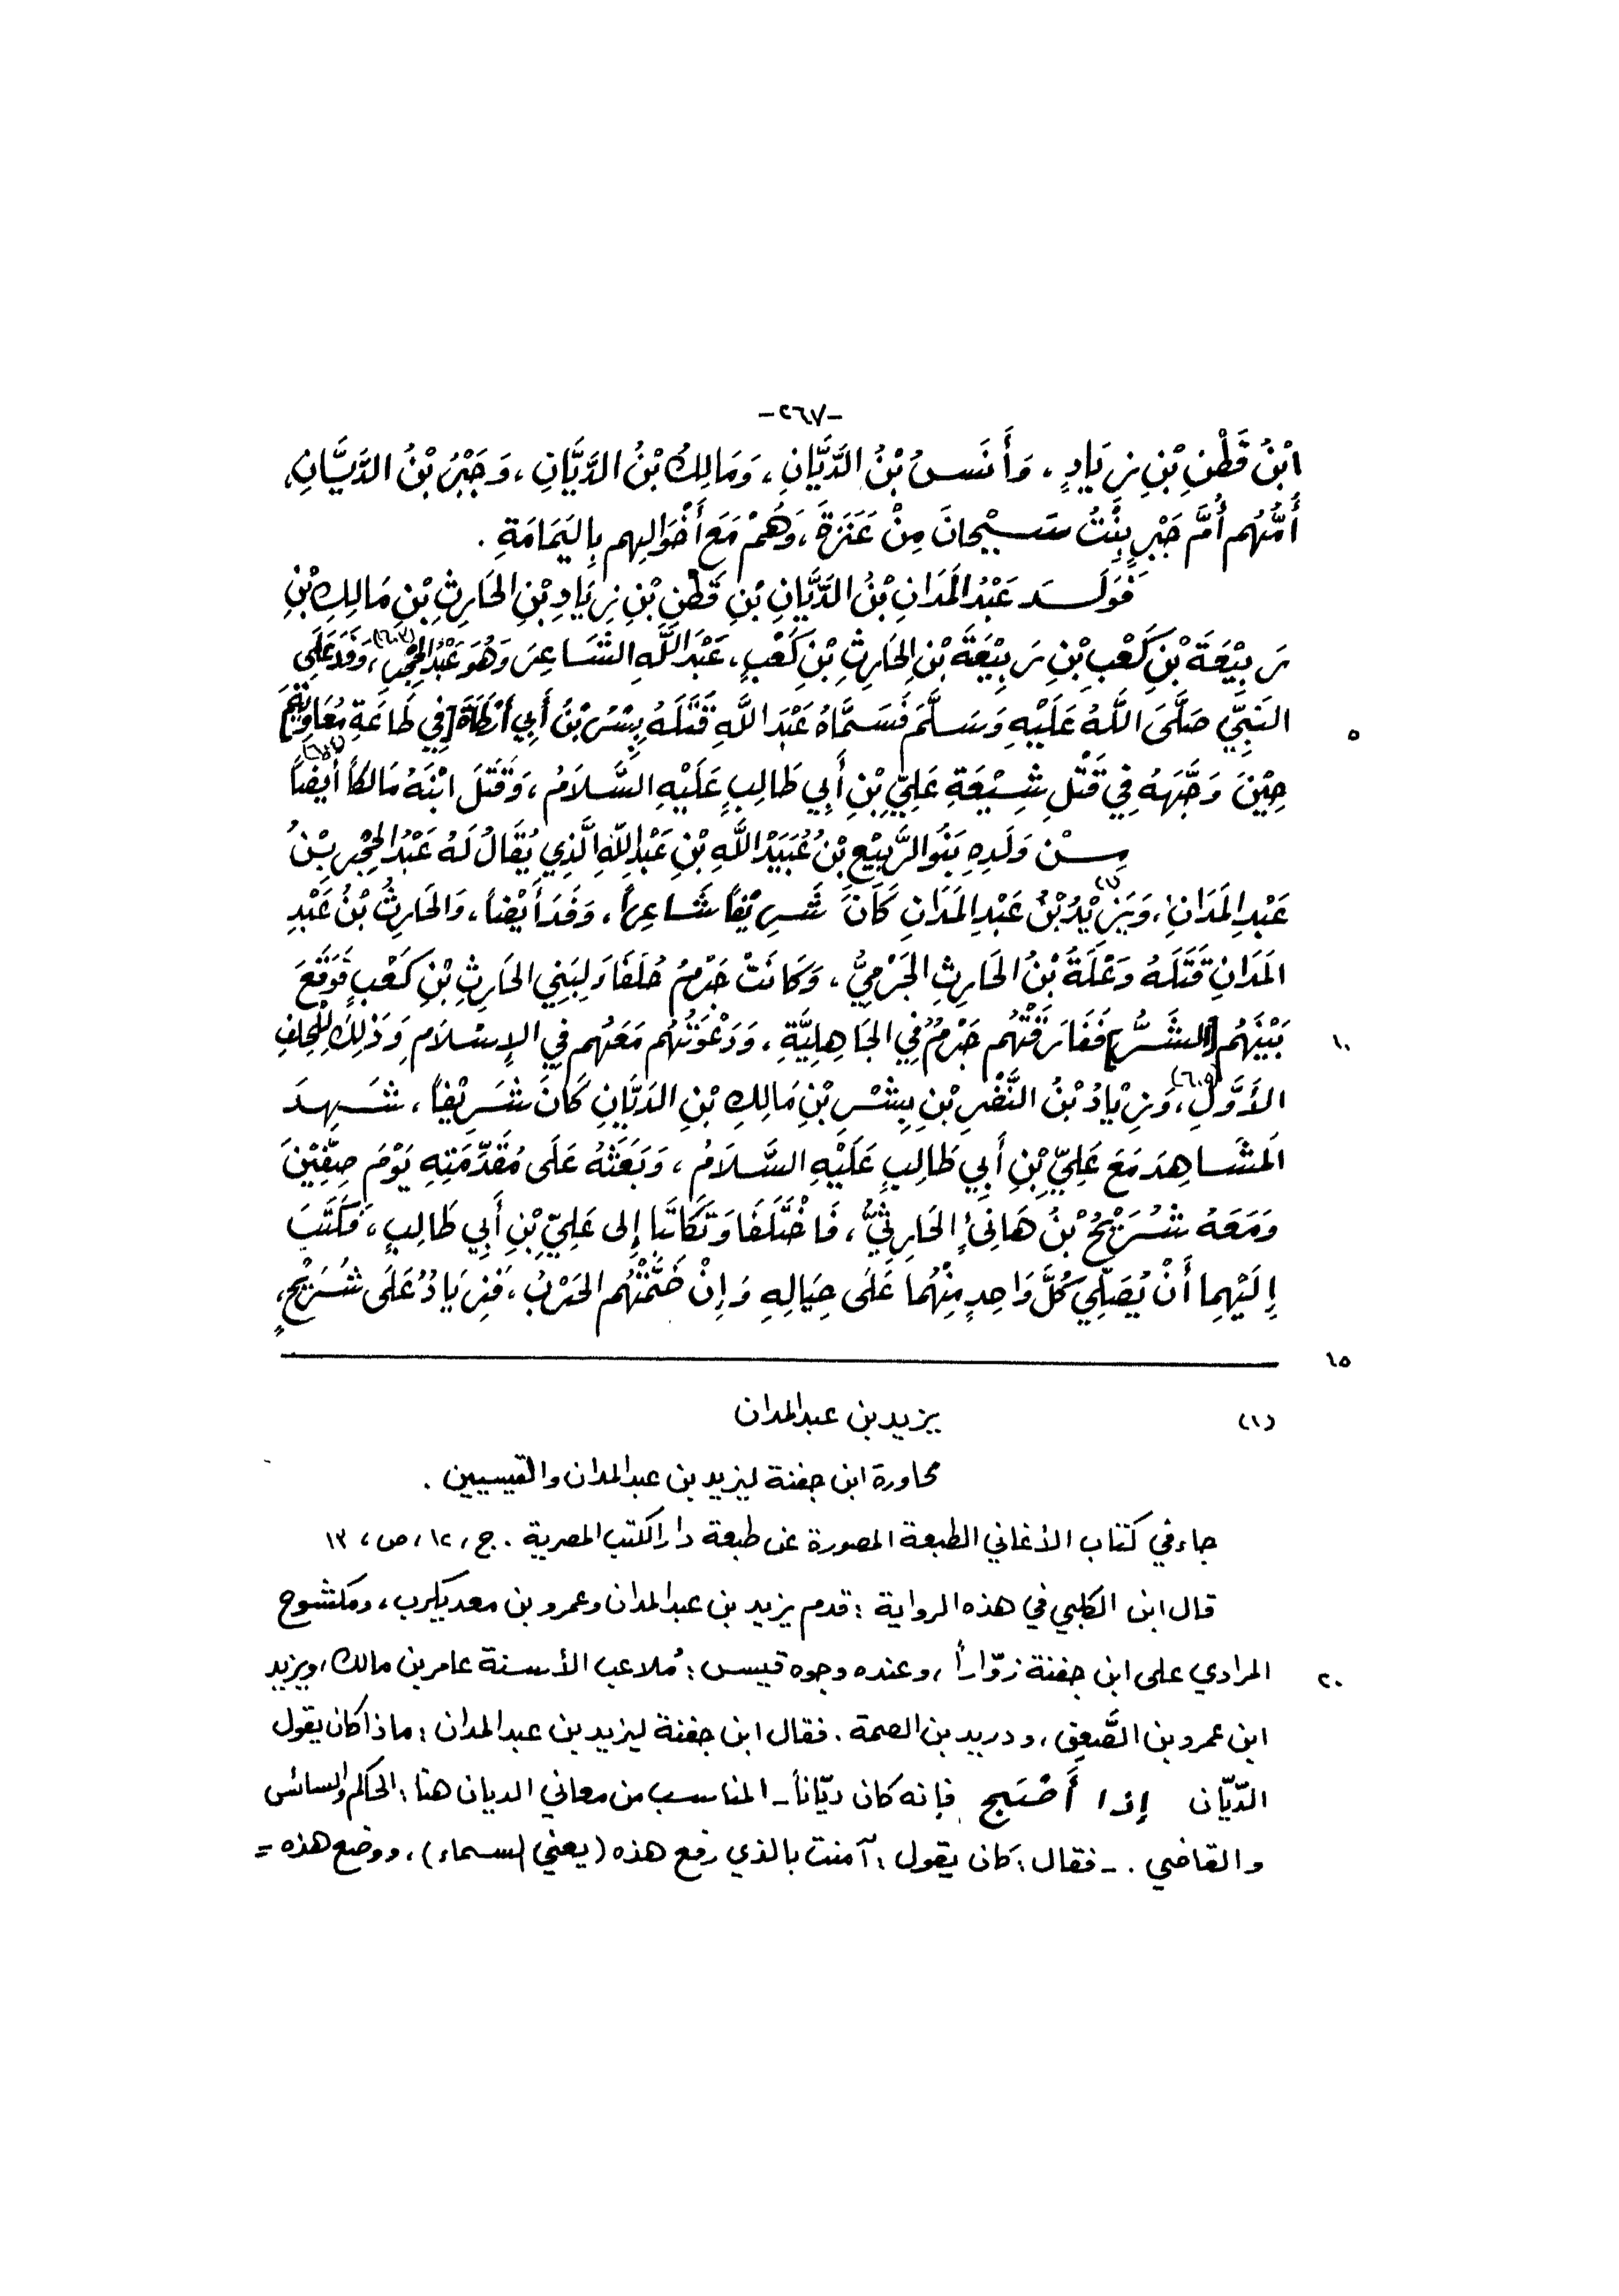 -٢٦٧-
ابْنُ قَطْنِ بْنِ زِيَادٍ، وَأَنَسُ بْنُ الدَّيَّانِ، وَمَالِكُ بْنُ الدَّيَّانِ، وَجَبْرُ بْنُ الدَّيَّانِ،
أُمُّهُم أُمُّ جَبْرٍ بِنْتُ سَيْحَانَ مِنْ عَنَزَةَ، وَهُمْ مَعَ أَخْوَالِهِم بِاليَمَامَةِ.
فَوَلَدَ عَبْدُ المَدَانِ بْنُ الدَّيَّانِ بْنِ قَطْنِ بْنِ زِيَادِ بْنِ الحَارِثِ بْنِ مَالِكِ بْنِ
رَبِيْعَةَ بْنِ كَعْبِ بْنِ رَبِيْعَةَ بْنِ الحَارِثِ بْنِ كَعْبٍ، عَبْدَ اللَّهِ الشَّاعِرَ وَهُوَ عَبْدُ الحِجْرِ (٦٠٣)، وَفَدَ عَلَى
النَبِيِّ صَلَّى اللَّهُ عَلَيْهِ وَسَلَّمَ فَسَمَّاهُ عَبْدَ اللَّهِ قَتَلَهُ بِسْرُ بْنُ أَبِي أَرْطَأَةَ [فِي طَاعَةِ مُعَاوِيَةَ]
٥
حِيْنَ وَجَّهَهُ فِي قَتْلِ شِيْعَةِ عَلِيِّ بْنِ أَبِي طَالِبٍ عَلَيْهِ السَّلَامُ، وَقَتَلَ ابْنَهُ مَالِكاً أَيْضاً (٦٠٤)
مِنْ وَلَدِهِ بَنُو الرَّبِيْعِ بْنُ عُبَيْدِ اللَّهِ بْنِ عَبْدِ اللَّهِ الَّذِي يُقَالُ لَهُ عَبْدُ الحِجْرِ بْنُ
عَبْدِ المَدَانِ، وَيَزِيْدُ بْنُ (١) عَبْدِ المَدَانِ كَانَ شَرِيْفاً شَاعِراً، وَفَدَ أَيْضاً، وَالحَارِثُ بْنُ عَبْدِ
المَدَانِ قَتَلَهُ وَعْلَةُ بْنُ الحَارِثِ الجَرْمِيُّ، وَكَانَتْ جَرْمُ حُلَفَاءَ لِبَنِي الحَارِثِ بْنِ كَعْبٍ فَوَقَعَ
بَيْنَهُم [الشَّرُّ] فَفَارَقَتْهُم جَرْمُ فِي الجَاهِلِيَّةِ، وَدَعْوَتُهُم مَعَهُم فِي الإِسْلَامِ وَذَلِكَ لِلْحِلْفِ
١٠
الأَوَّلِ (٦٠٥)، وَزِيْادُ بْنُ النَّضْرِ بْنِ بِشْرِ بْنِ مَالِكِ بْنِ الدَيَّانِ كَانَ شَرِيْفاً، شَهِدَ
المَشَاهِدَ مَعَ عَلِيِّ بْنِ أَبِي طَالِبٍ عَلَيْهِ السَّلَامُ، وَبَعَثَهُ عَلَى مُقَدِّمَتِهِ يَوْمَ صِفِّيْنَ
وَمَعَهُ شُرَيْحُ بْنُ هَانِئٍ الحَارِثِيُّ، فَاخْتَلَفَا وَتَكَاتَبَا إِلى عَلِيِّ بْنِ أَبِي طَالِبٍ، فَكَتَبَ
إِلَيْهِمَا أَنْ يُصَلِّيَ كُلُّ وَاحِدٍ مِنْهُمَا عَلَى حِيَالِهِ وَإِنْ ضَمَّتْهُم الحَرْبُ، فَزِيَادُ عَلَى شُرَيْحٍ،
١٥
(١) يزيد بن عبد المدان
محاورة ابن جفنة ليزيد بن عبد المدان والقيسيين.
جاء في كتاب الأغاني الطبعة المصورة عن طبعة دار الكتب المصرية. ج، ١٢، ص، ١٣
قال ابن الكلبي في هذه الرواية: قدم يزيد بن عبد المدان وعمرو بن معديكرب، ومكشوح
المرادي على ابن جفنة زوّاراً، وعنده وجوه قيس: مُلاعب الأسنة عامر بن مالك، ويزيد
٢٠
ابن عمرو بن الصَّعِق، ودريد بن الصمة. فقال ابن جفنة ليزيد بن عبد المدان: ماذا كان يقول
الدّيّان إذا أَصْبَحَ فإنه كان ديّاناً - المناسب من معاني الديان هنا: الحاكم والسائس
والقاضي. - فقال: كان يقول: آمنت بالذي رفع هذه (يعني السماء)، ووضع هذه =